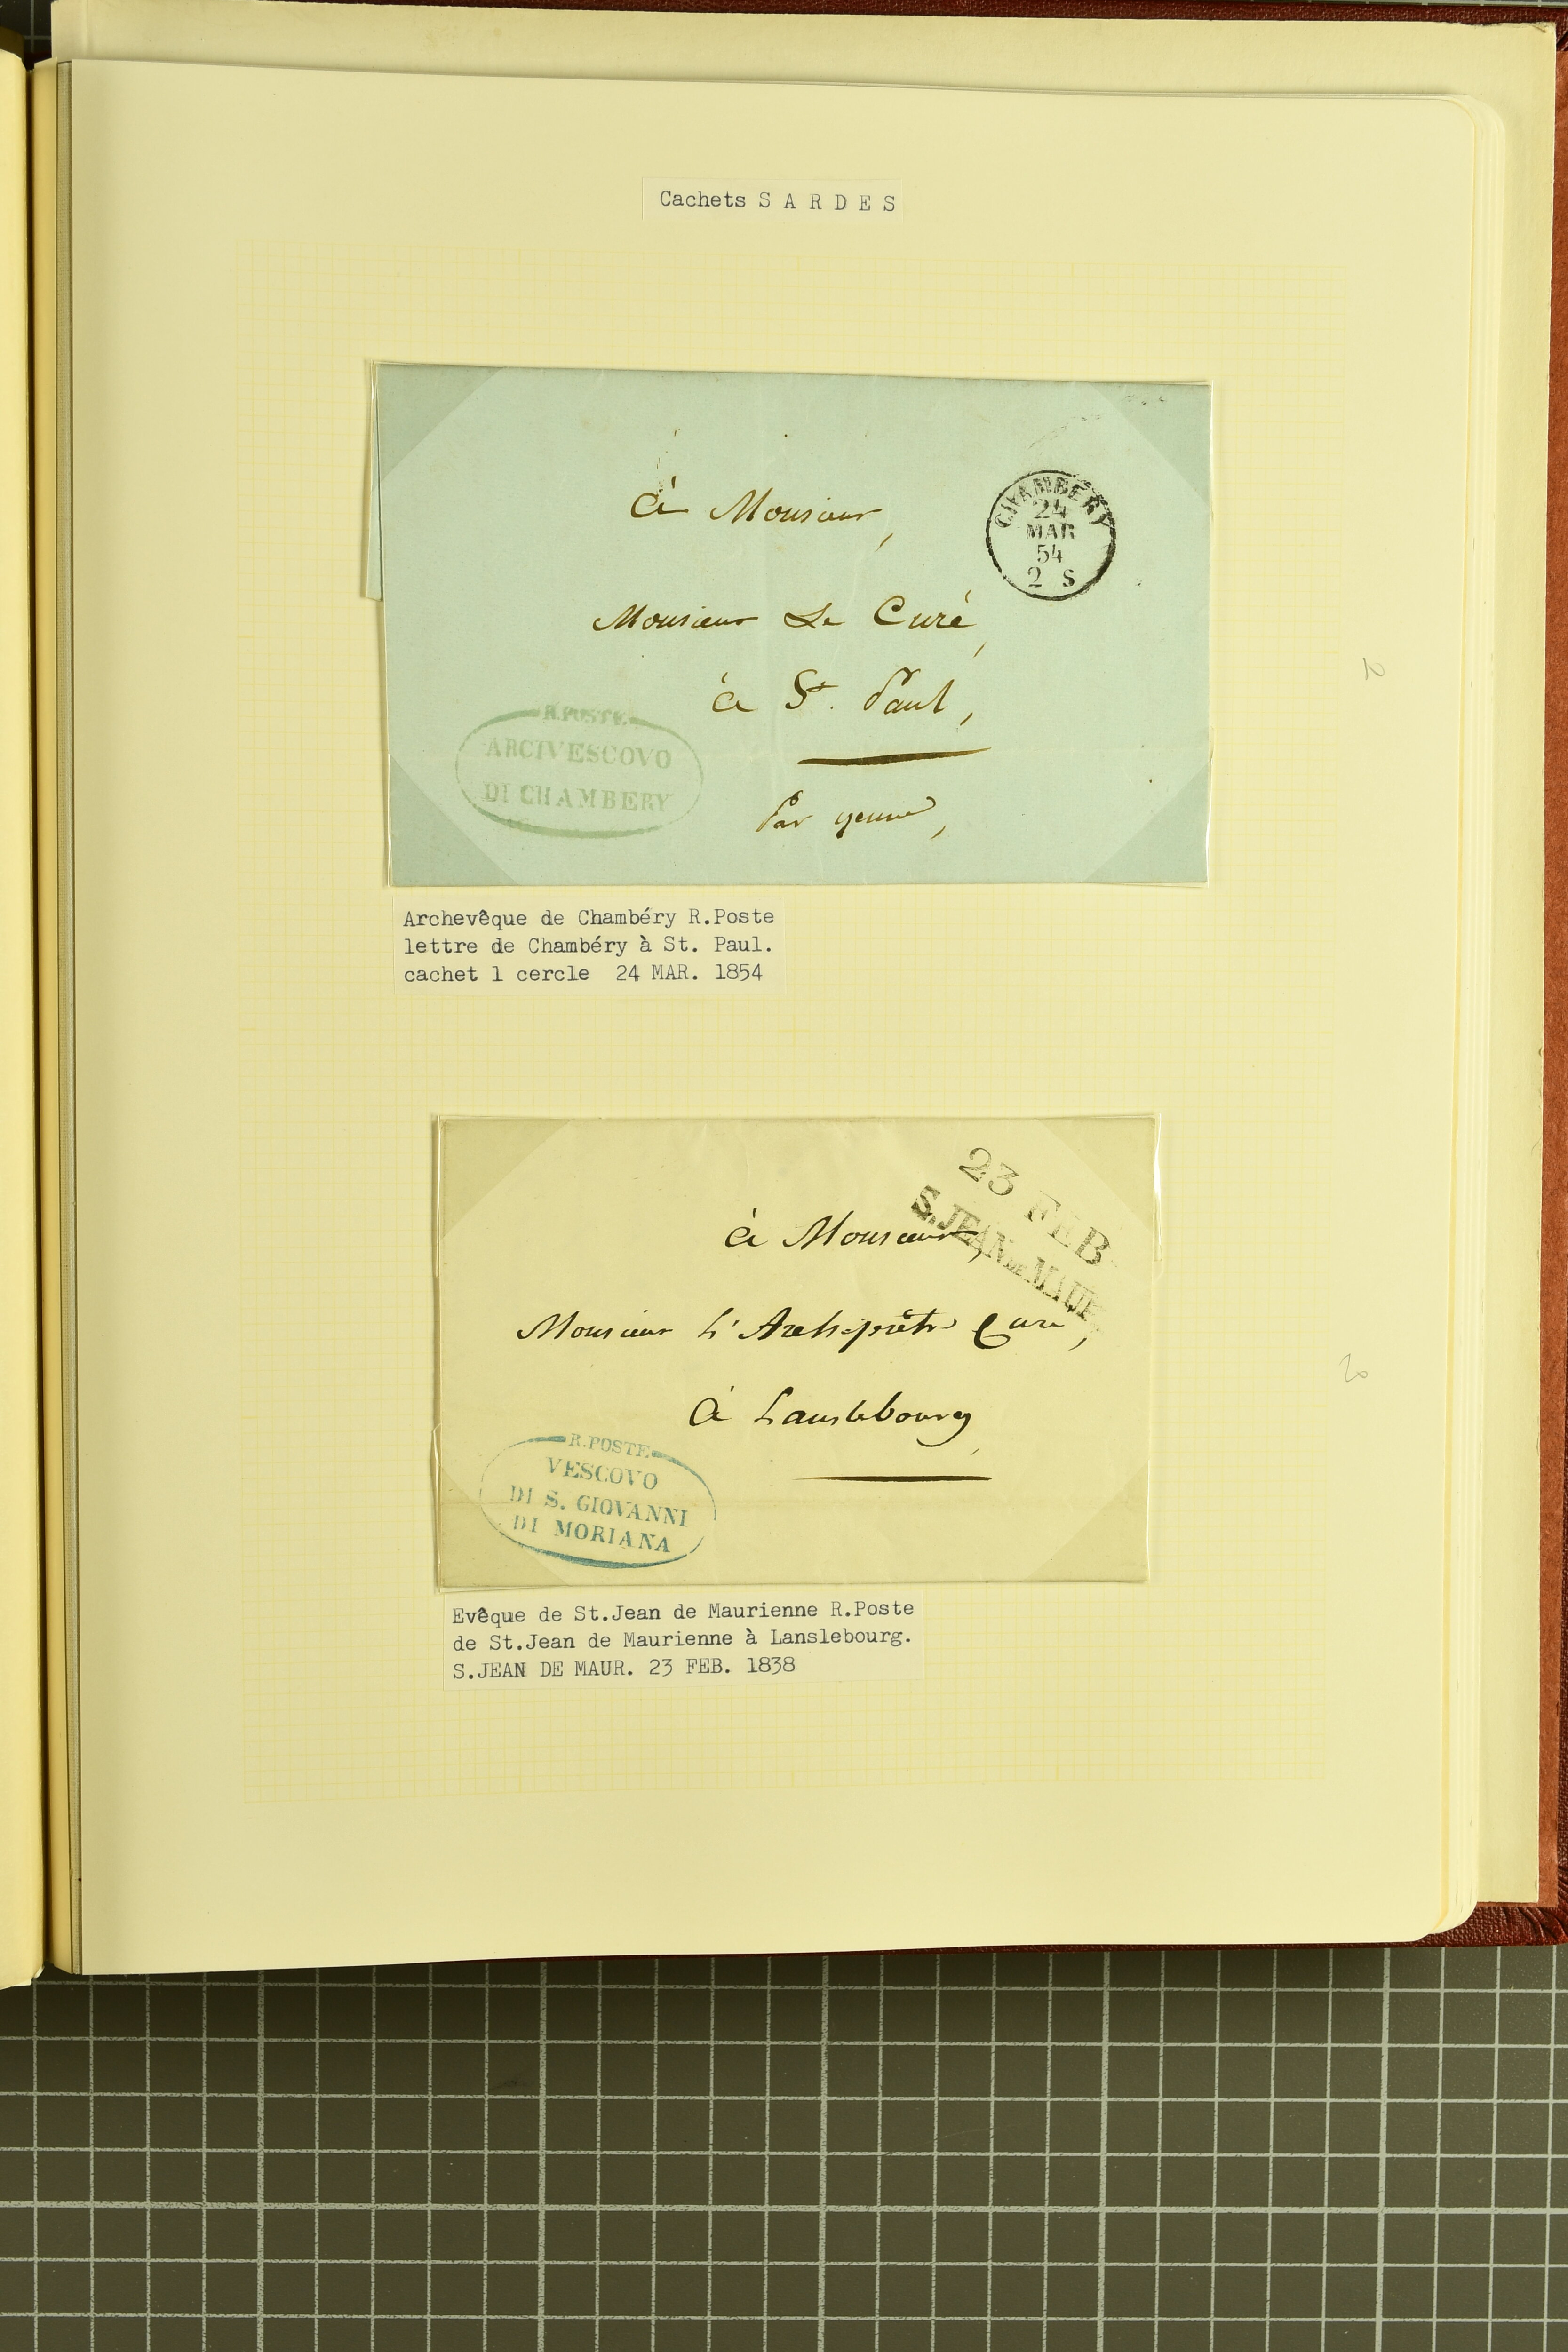 Cachets S A R D E S
à Monsieur,
CHAMBERY
24
MAR
54
2 S
Monsieur Le Curé,
à St. Paul,
Par yenne,
R. POSTE
ARCIVESCOVO
DI CHAMBERY
Archevêque de Chambéry R.Poste
lettre de Chambéry à St. Paul.
cachet 1 cercle 24 MAR. 1854
23 FEB
S. JEAN DE MAUR.
à Monsieur,
Monsieur L'Archiprêtre Curé,
à Lanslebourg,
R. POSTE
VESCOVO
DI S. GIOVANNI
DI MORIANA
Evêque de St.Jean de Maurienne R.Poste
de St.Jean de Maurienne à Lanslebourg.
S.JEAN DE MAUR. 23 FEB. 1838